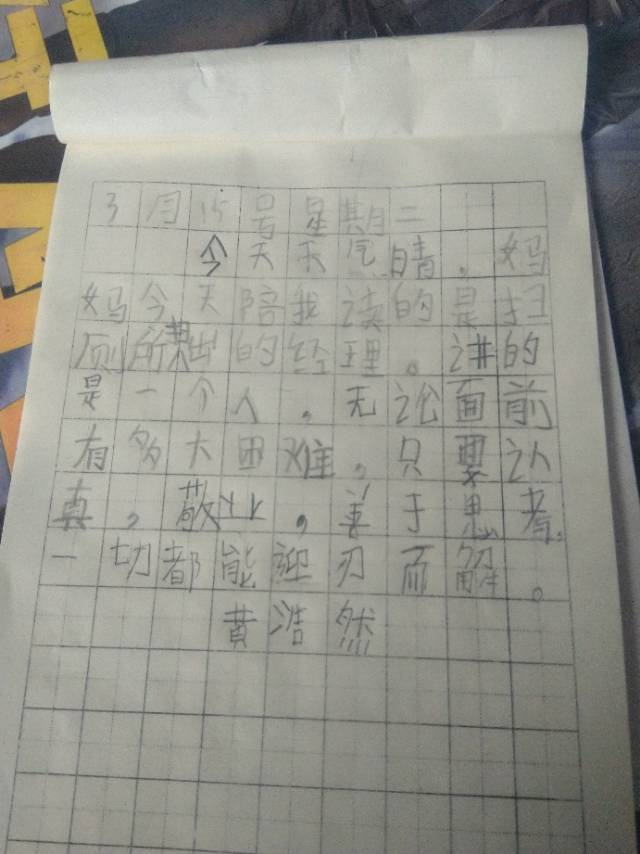 3月15号星期二
今天天气晴。妈
妈今天陪我读的是扫
厕所出的经理。讲的
是一个人，无论面前
有多大困难，只要认
真，敬业，善于思考，
一切都能迎刃而解。
黄浩然